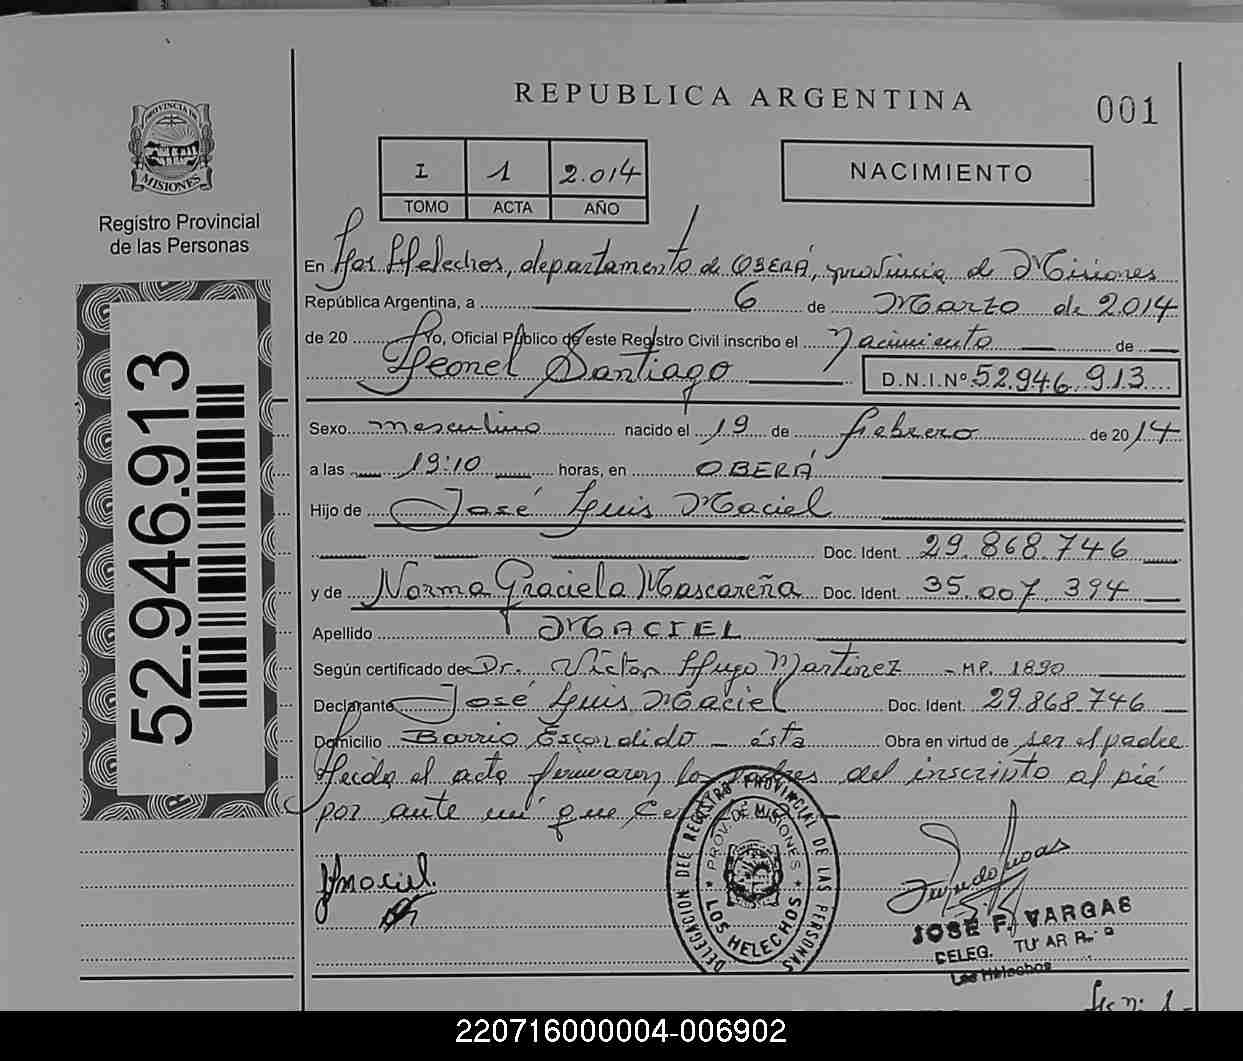 REPUBLICA ARGENTINA
001
PROVINCIA DE
MISIONES
Registro Provincial
de las Personas
I 1 2.014
TOMO ACTA AÑO
NACIMIENTO
En Los Helechos, departamento de OBERÁ, provincia de Misiones
República Argentina, a 6 de Marzo de 2.014
de 20 Yo, Oficial Público de este Registro Civil inscribo el Nacimiento de
Leonel Santiago D.N.I.Nº 52.946.913
Sexo masculino nacido el 19 de febrero de 2014
a las 19:10 horas, en OBERÁ
Hijo de José Luis Maciel
Doc. Ident. 29.868.746
y de Norma Graciela Mascareña Doc. Ident. 35.007.394
Apellido MACIEL
Según certificado de Dr. Victor Hugo Martinez - M.P. 1890
Declarante José Luis Maciel Doc. Ident. 29.868.746
Domicilio Barrio Escondido - ésta Obra en virtud de ser el padre
Leída el acta firmaron los padres del inscripto al pié
por ante mí que
52.946.913
DELEGACION DEL REGISTRO PROVINCIAL DE LAS PERSONAS
PROV. DE MISIONES
LOS HELECHOS
JOSE F. VARGAS
DELEG.
Los Helechos
220716000004-006902